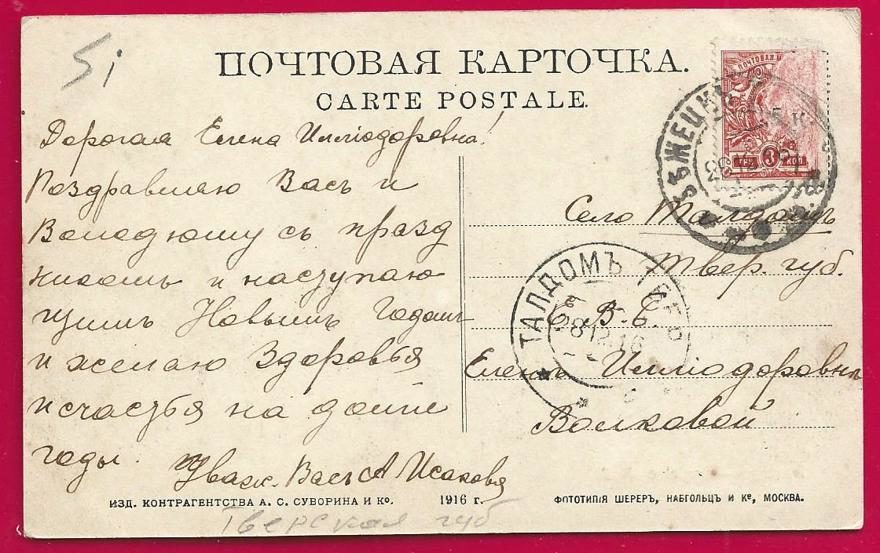 5i
ПОЧТОВАЯ КАРТОЧКА.
CARTE POSTALE.
Дорогая Елена Иллiодоровна!
Поздравляю Васъ и
Володюшу съ празд
никомъ и наступаю
щимъ Новымъ Годомъ
и желаю Здоровья
и счастья на долгie
годы.
Уваж. Васъ А Исакова
Село Талдомъ
Твер. губ.
Е. В. Б.
Еленѣ Иллiодоровнѣ
Волковой
БѢЖЕЦКЪ
ТРИ 3 КОП
ТАЛДОМЪ ТВЕР
28 12 16
ИЗД. КОНТРАГЕНТСТВА А. С. СУВОРИНА И Ко.
1916 г.
ФОТОТИПIЯ ШЕРЕРЪ, НАБГОЛЬЦЪ И Ке, МОСКВА.
Тверская губ